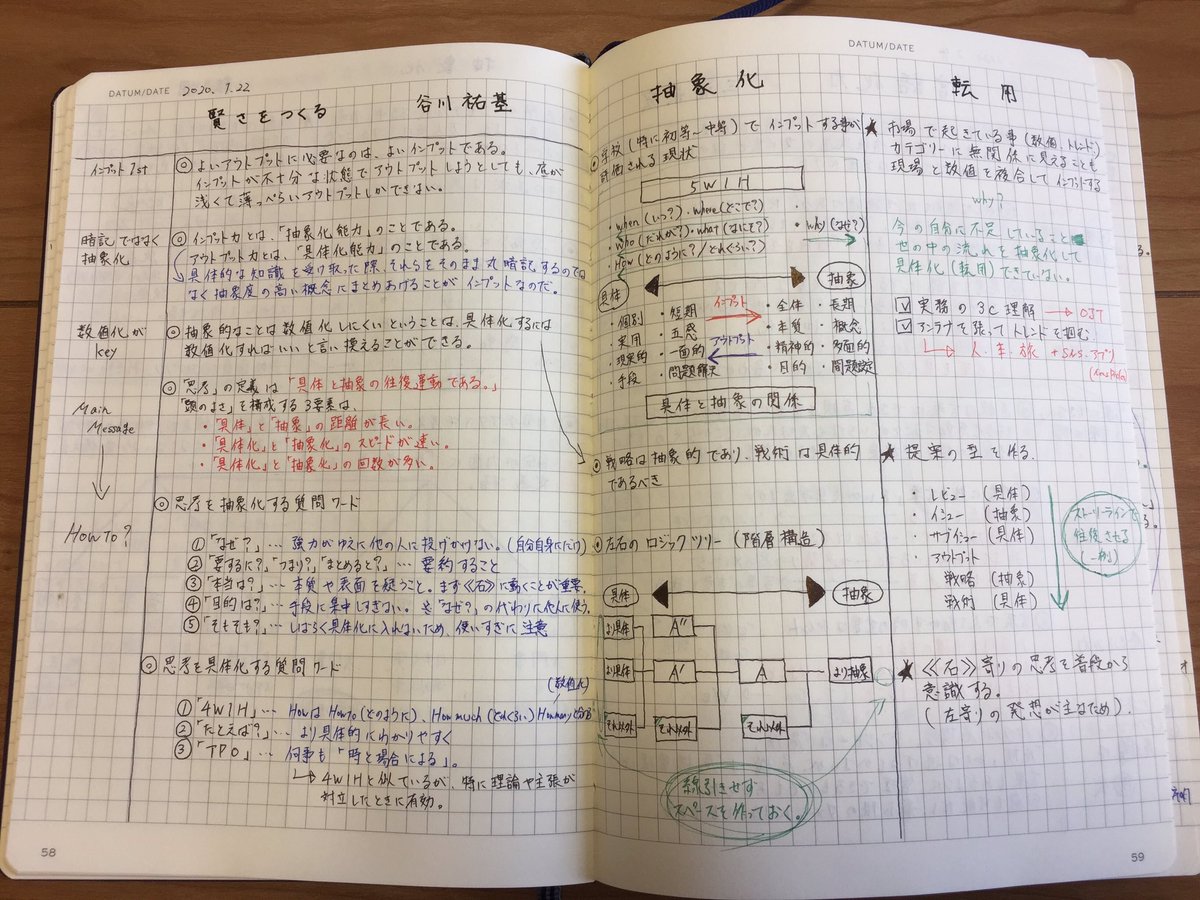 DATUM/DATE 2020.1.22
賢さをつくる 谷川祐基
インプット1st
◎よいアウトプットに必要なのは、よいインプットである。
インプットが不十分な状態でアウトプットしようとしても、底が
浅くて薄っぺらいアウトプットしかできない。
暗記ではなく
抽象化
◎インプット力とは、「抽象化能力」のことである。
アウトプット力とは、「具体化能力」のことである。
具体的な知識を受け取った際、それらをそのまま丸暗記するのでは
なく抽象度の高い概念にまとめあげることがインプットなのだ。
数値化が
key
◎抽象的なことは数値化しにくいということは、具体化するには
数値化すればいいと言い換えることができる。
Main
Message
◎「思考」の定義は「具体と抽象の往復運動である。」
「頭のよさ」を構成する3要素は、
・「具体」と「抽象」の距離が長い。
・「具体化」と「抽象化」のスピードが速い。
・「具体化」と「抽象化」の回数が多い。
How To?
◎思考を抽象化する質問ワード
①「なぜ?」… 強力がゆえに他の人に投げかけない。(自分自身にだけ)
②「要するに?」「つまり?」「まとめると?」… 要約すること
③「本当は?」… 本質や表面を疑うこと。まず《右》に動くことが重要。
④「目的は?」… 手段に集中しすぎない。「なぜ?」の代わりに他人に使う。
⑤「そもそも?」… しばらく具体化に入れないため、使いすぎに注意
◎思考を具体化する質問ワード
(数値化)
①「4W1H」… HowはHowTo(どのように)、How much(どれくらい)
②「たとえば?」… より具体的にわかりやすく
③「TPO」… 何事も「時と場合による」。
↳4W1Hと似ているが、特に理論や主張が
対立したときに有効。
58
DATUM/DATE
抽象化
学校(特に初等~中等)でインプットする事が
評価される現状
5W1H
・when(いつ?)・where(どこで?)
・who(だれが?)・what(なにを?)
・How(どのように?/どれくらい?)
・why(なぜ?)
具体 抽象
・個別 ・短期 インプット ・全体 ・長期
・実用 ・五感 ・本質 ・概念
・現実的 ・一面的 アウトプット ・精神的 ・多面的
・手段 ・問題解決 ・目的 ・問題設定
具体と抽象の関係
戦略は抽象的であり、戦術は具体的
であるべき
左右のロジックツリー(階層構造)
具体 抽象
より具体 A''
より具体 A' A より抽象
それ以外 それ以外 それ以外
線引きせず
スペースを作っておく。
転用
★市場で起きている事(数値、トレンド)
カテゴリーに無関係に見えることも
現場と数値を複合してインプットする
why?
今の自分に不足していること
世の中の流れを抽象化して
具体化(転用)できていない。
☑実務の3C理解 → OJT
☑アンテナを張ってトレンドを掴む
↳人・本・旅 + SNS、アプリ
★提案の型を作る
・レビュー(具体)
・イシュー(抽象)
・サブイシュー(具体)
アウトプット
戦略(抽象)
戦術(具体)
ストーリーラインで
往復させる
(一例)
★《右》寄りの思考を普段から
意識する。
(左寄りの発想が主なため).
59